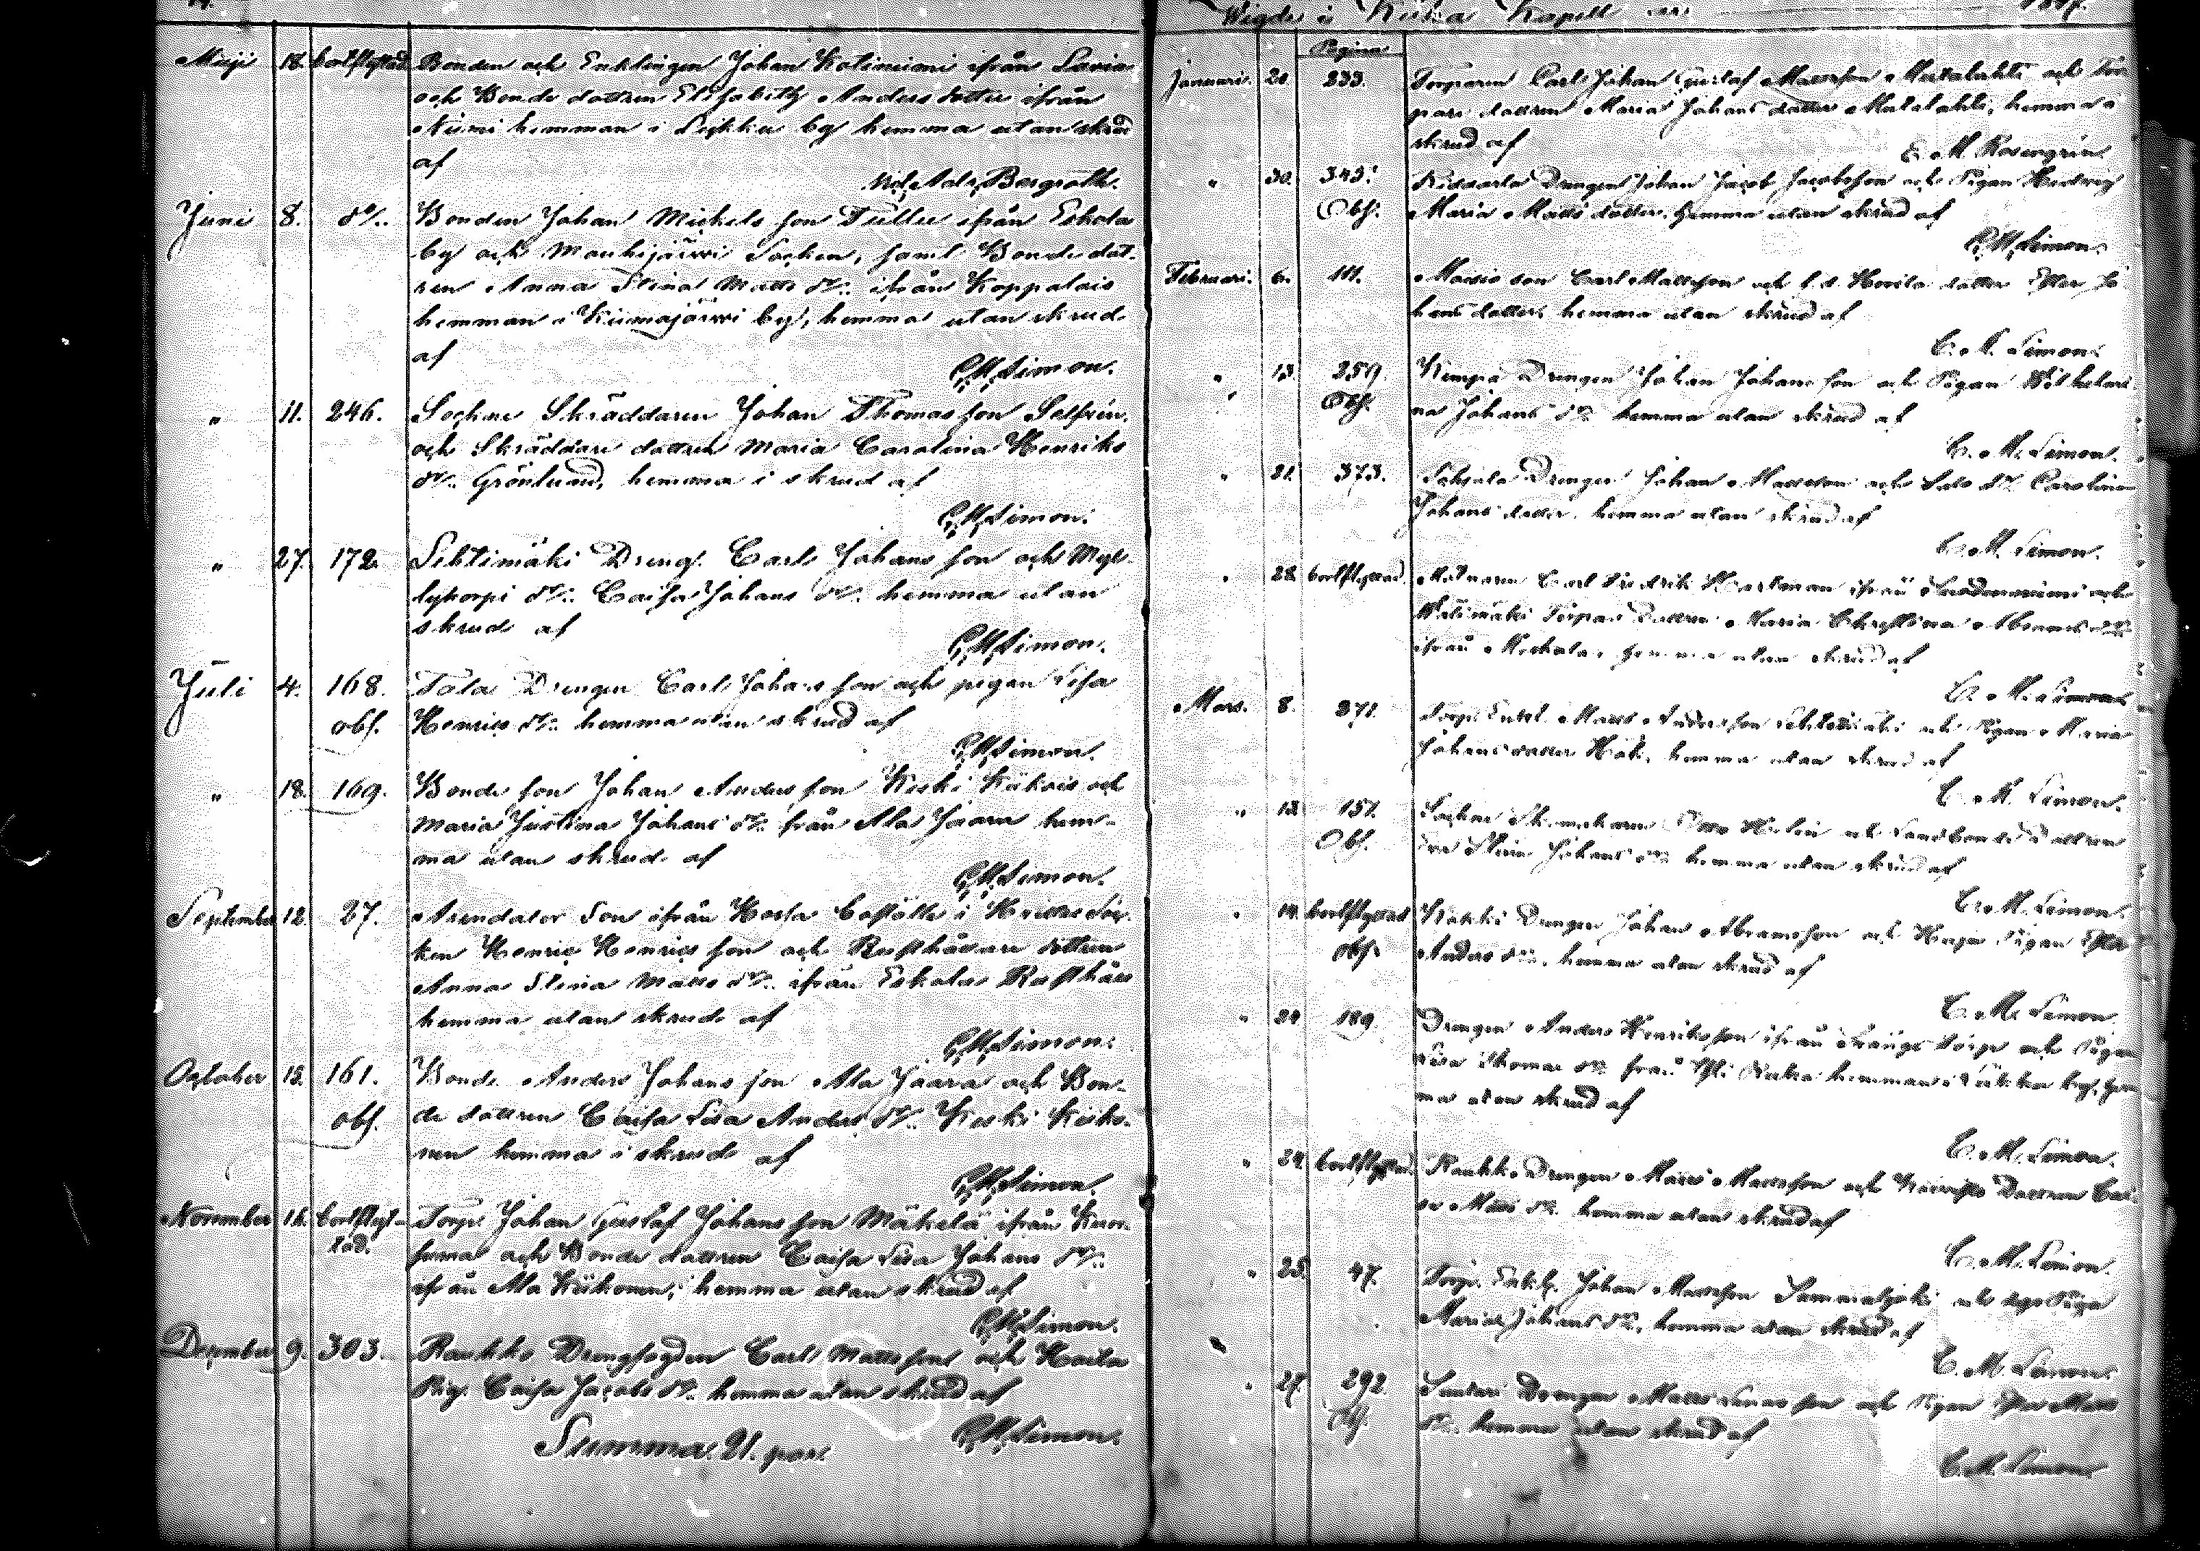 Maji 18. bortflyttad Bonden och Enklingen Johan Kotiniemi ifrån Lavia
och Bonde dottren Elisabeth Anders dotter ifrån
Niemi hemman i hemma utan skrud
af
Bergroth.
Juni 8. do. Bonden Johan Michels son Tullu ifrån Eskola
by och Mouhijärwi Socken, samt Bonde dot-
ren Anna Stina Matts dr. ifrån Koppalais
hemman i Kiimajärwi by, hemma utan skrud
af
C. M. Simon.
" 11. 246. Sockne Skräddaren Johan Thomas son Selfrin
och Skräddare dottren Maria Carolina Henriks
dr. Grönlund, hemma i skrud af
C. M. Simon.
" 27. 172. Lehtimäki Dreng. Carl Johans son och Myl-
lykorpi dr. Caisa Johans dr. hemma utan
skrud af
C. M. Simon.
Juli 4. 168. Tala Drengen Carl Johans son och pigan Lisa
obs. Henrics dr. hemma utan skrud af
C. M. Simon.
" 18. 169. Bonde son Johan Anders son Keski Kiikois och
Maria Justina Johans dr. från Ala Jaara hem-
ma utan skrud af
C. M. Simon.
September 12. 27. Arendator Son ifrån i Soc-
ken Henric Henrics son och Rusthållare dottren
Anna Stina Matts dr. ifrån Eskola Rusthåll
hemma utan skrud af
C. M. Simon.
October 12. 161. Bonde Anders Johans son Ala Jaara och Bon-
obs. de dottren Caisa Lisa Anders dr. Keski Kiiko-
nen hemma i skrud af
C. M. Simon.
November 16. bortflyt- Torp. Johan Gustaf Johans son Mäkelä ifrån
tad. och Bonde dottren Caisa Lisa Johans dr.
ifrån Ala Kiikonen, hemma utan skrud af
C. M. Simon.
December 9. 303. Raukko Drengfogden Carl Matts son och
Pig. Caisa Jacobs dr. hemma utan skrud af
C. M. Simon.
Summa 21. par.
Wigde i Kiika Kapell
Pagina
Januari. 20. 233. Torparen Carl Johan Gustaf Mattsson och Tor-
pare dottren Maria Johans dotter hemma i
skrud af
C. M. Rosengren
" 30. 343. Drengen Johan Jacob Jacobsson och Pigan Hedwig
Obs. Maria Matts dotter. hemma utan skrud af
C. M. Simon.
Februari. 6. 111. son Carl Mattsson och dotter Ester Jo-
hans dotter hemma utan skrud af
C. M. Simon.
" 13. 259. Kimpa Drengen Johan Johans son och Pigan Wilhelmi-
Obs. na Johans dr. hemma utan skrud af
C. M. Simon.
" 21. 373. Drengen Johan Mattsson och dr. Carolina
Johans dotter. hemma utan skrud af
C. M. Simon.
" 28. bortflyttad. Carl Fredrik Hartman ifrån och
Torpare Dottren Maria Christina Abrams dr.
ifrån hemma utan skrud af
C. M. Simon.
Mars. 8. 371. Torp. Enkl. Matts Anders son och Pigan Maria
Johans dotter hemma utan skrud af
C. M. Simon.
" 13. 151. Sockne Skomakaren Otto och Landbonde Dottren
Obs. Johans dr. hemma utan skrud af
C. M. Simon.
" 14. bortflyttad Drengen Johan Abramsson och Pigan Ester
obs. Anders dr. hemma utan skrud af
C. M. Simon.
" 24. 189. Drengen Anders Henriksson ifrån torp och Pigan
Lisa Thomas dr. från hemman i by, hem-
ma utan skrud af
C. M. Simon.
" 24. bortflyttad. Raukko Drengen Matts Mattsson och Dottren
Matts dr. hemma utan skrud af
C. M. Simon.
" 25. 47. Torp. Enkl. Johan Mattsson Sammaljoki och
Maria Johans dr. hemma utan skrud af
C. M. Simon.
" 27. 292. Drengen Matts son och Pigan Matts
Obs. dr. hemma utan skrud af
C. M. Simon.